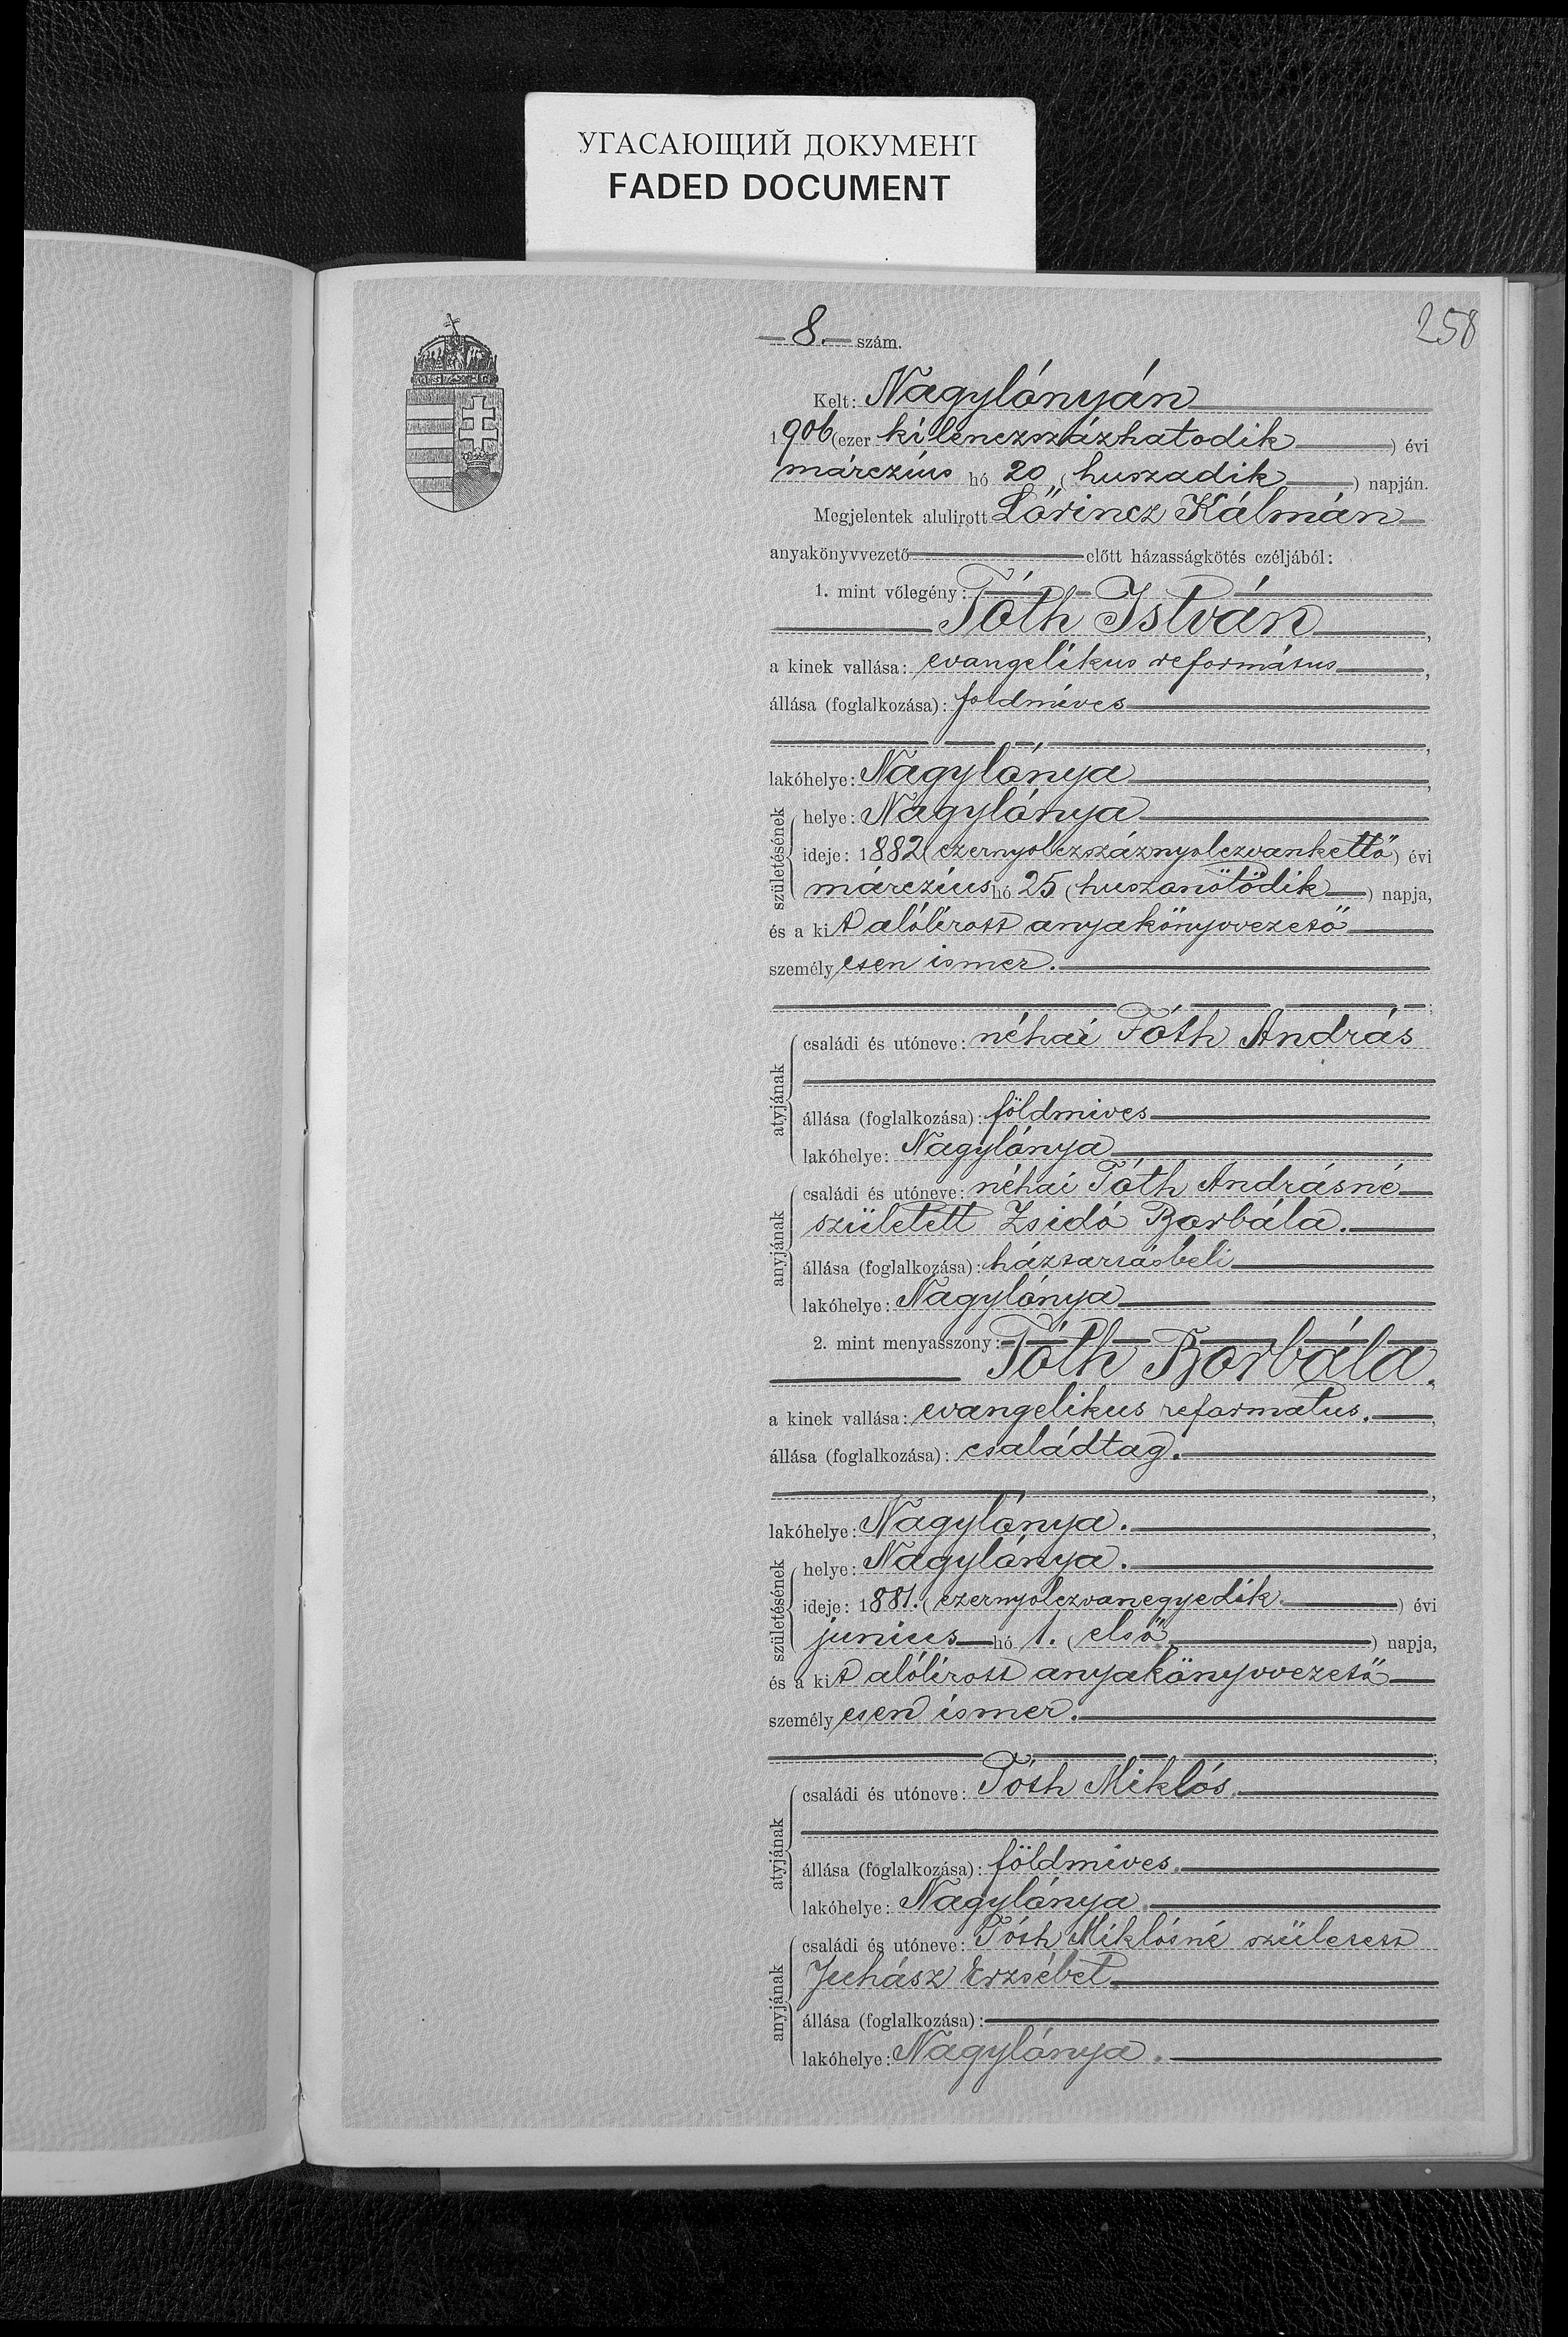 УГАСАЮЩИЙ ДОКУМЕНТ
FADED DOCUMENT
258
8. szám.
Kelt: Nagylónyán
1906 (ezer kilenczszázhatodik) évi
márczius hó 20 (huszadik) napján.
Megjelentek alulirott Lőrincz Kálmán
anyakönyvvezető előtt házasságkötés czéljából:
1. mint vőlegény:
Tóth István,
a kinek vallása: evangelikus református,
állása (foglalkozása): földmíves
,
lakóhelye: Nagylónya,
születésének
helye: Nagylónya
ideje: 1882 (ezernyolczszáznyolczvankettő) évi
márczius hó 25 (huszonötödik) napja,
és a kit alólírott anyakönyvvezető
személyesen ismer.
;
atyjának
családi és utóneve: néhai Tóth András
állása (foglalkozása): földmives
lakóhelye: Nagylónya
anyjának
családi és utóneve: néhai Tóth Andrásné
született Zsidó Borbála.
állása (foglalkozása): háztartásbeli
lakóhelye: Nagylónya
2. mint menyasszony:
Tóth Borbála.
a kinek vallása: evangelikus reformatus.,
állása (foglalkozása): családtag.
,
lakóhelye: Nagylónya.,
születésének
helye: Nagylónya.
ideje: 1881. (ezernyolczvanegyedik) évi
junius hó 1. (első) napja,
és a kit alólírott anyakönyvvezető
személyesen ismer.
;
atyjának
családi és utóneve: Tóth Miklós.
állása (foglalkozása): földmives.
lakóhelye: Nagylónya.
anyjának
családi és utóneve: Tóth Miklósné született
Juhász Erzsébet
állása (foglalkozása):
lakóhelye: Nagylónya.